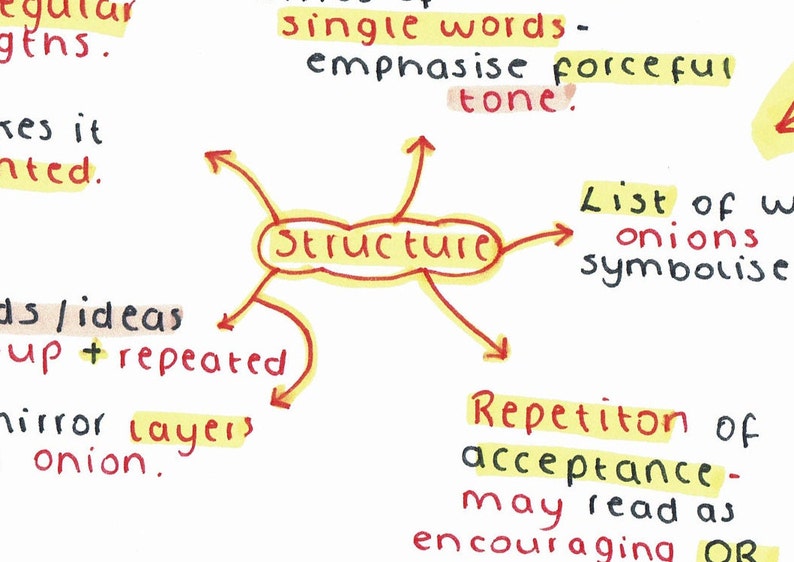 single words -
emphasise forceful
tone.
Structure
List of
onions
symbolise
ideas
up + repeated
layers
onion.
Repetiton of
acceptance -
may read as
encouraging OR
it